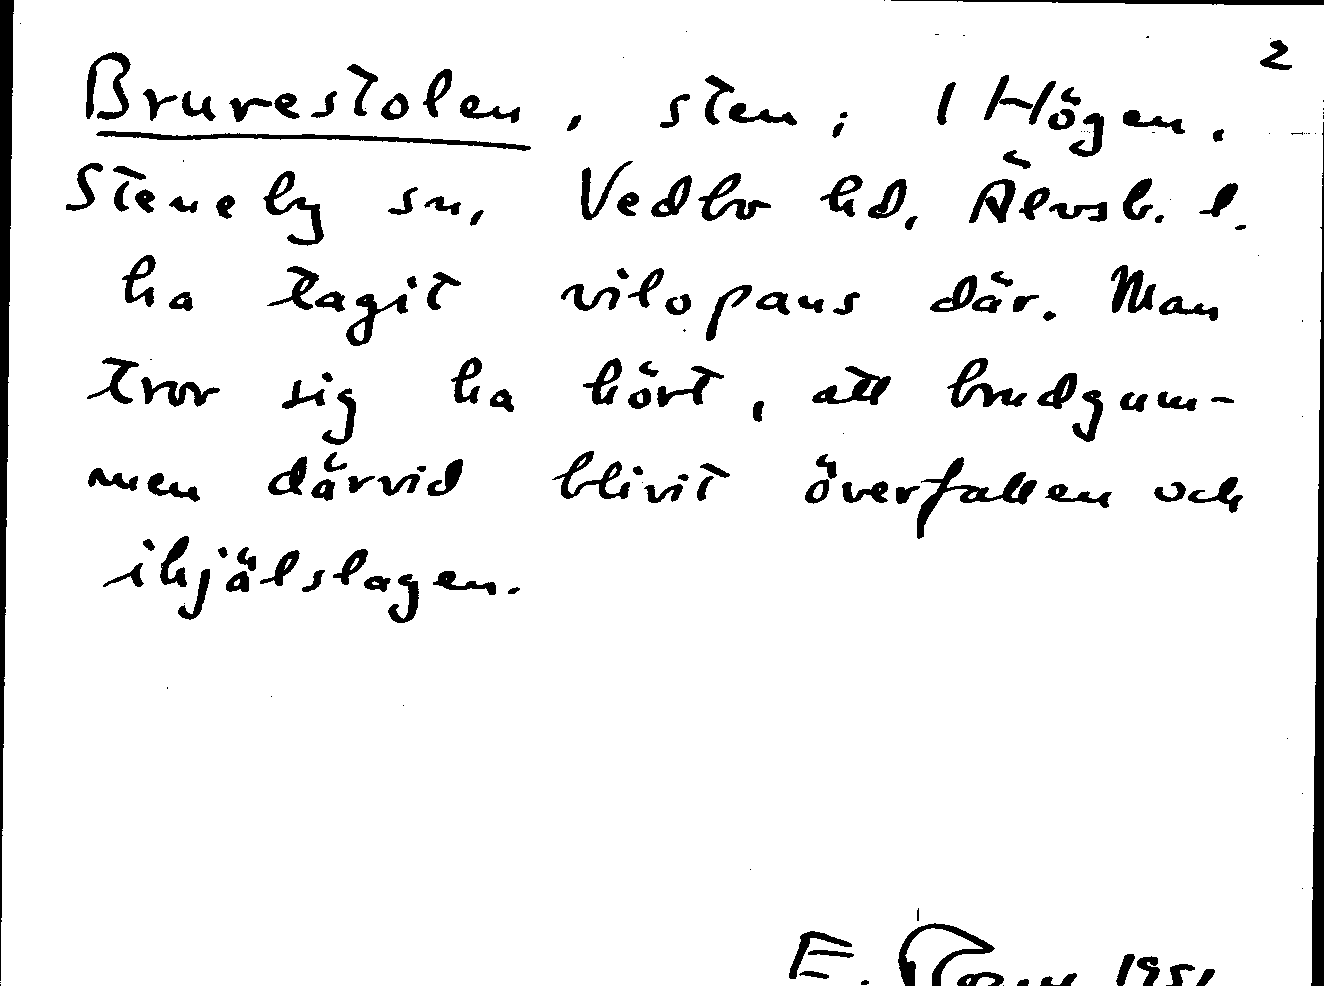 2
Bruvestolen, sten; 1 Högen.
Steneby sn, Vedbo hd, Älvsb. l.
ha tagit vilopaus där. Man
tror sig ha hört, att brudgum-
men därvid blivit överfallen och
ihjälslagen.
E. 1951